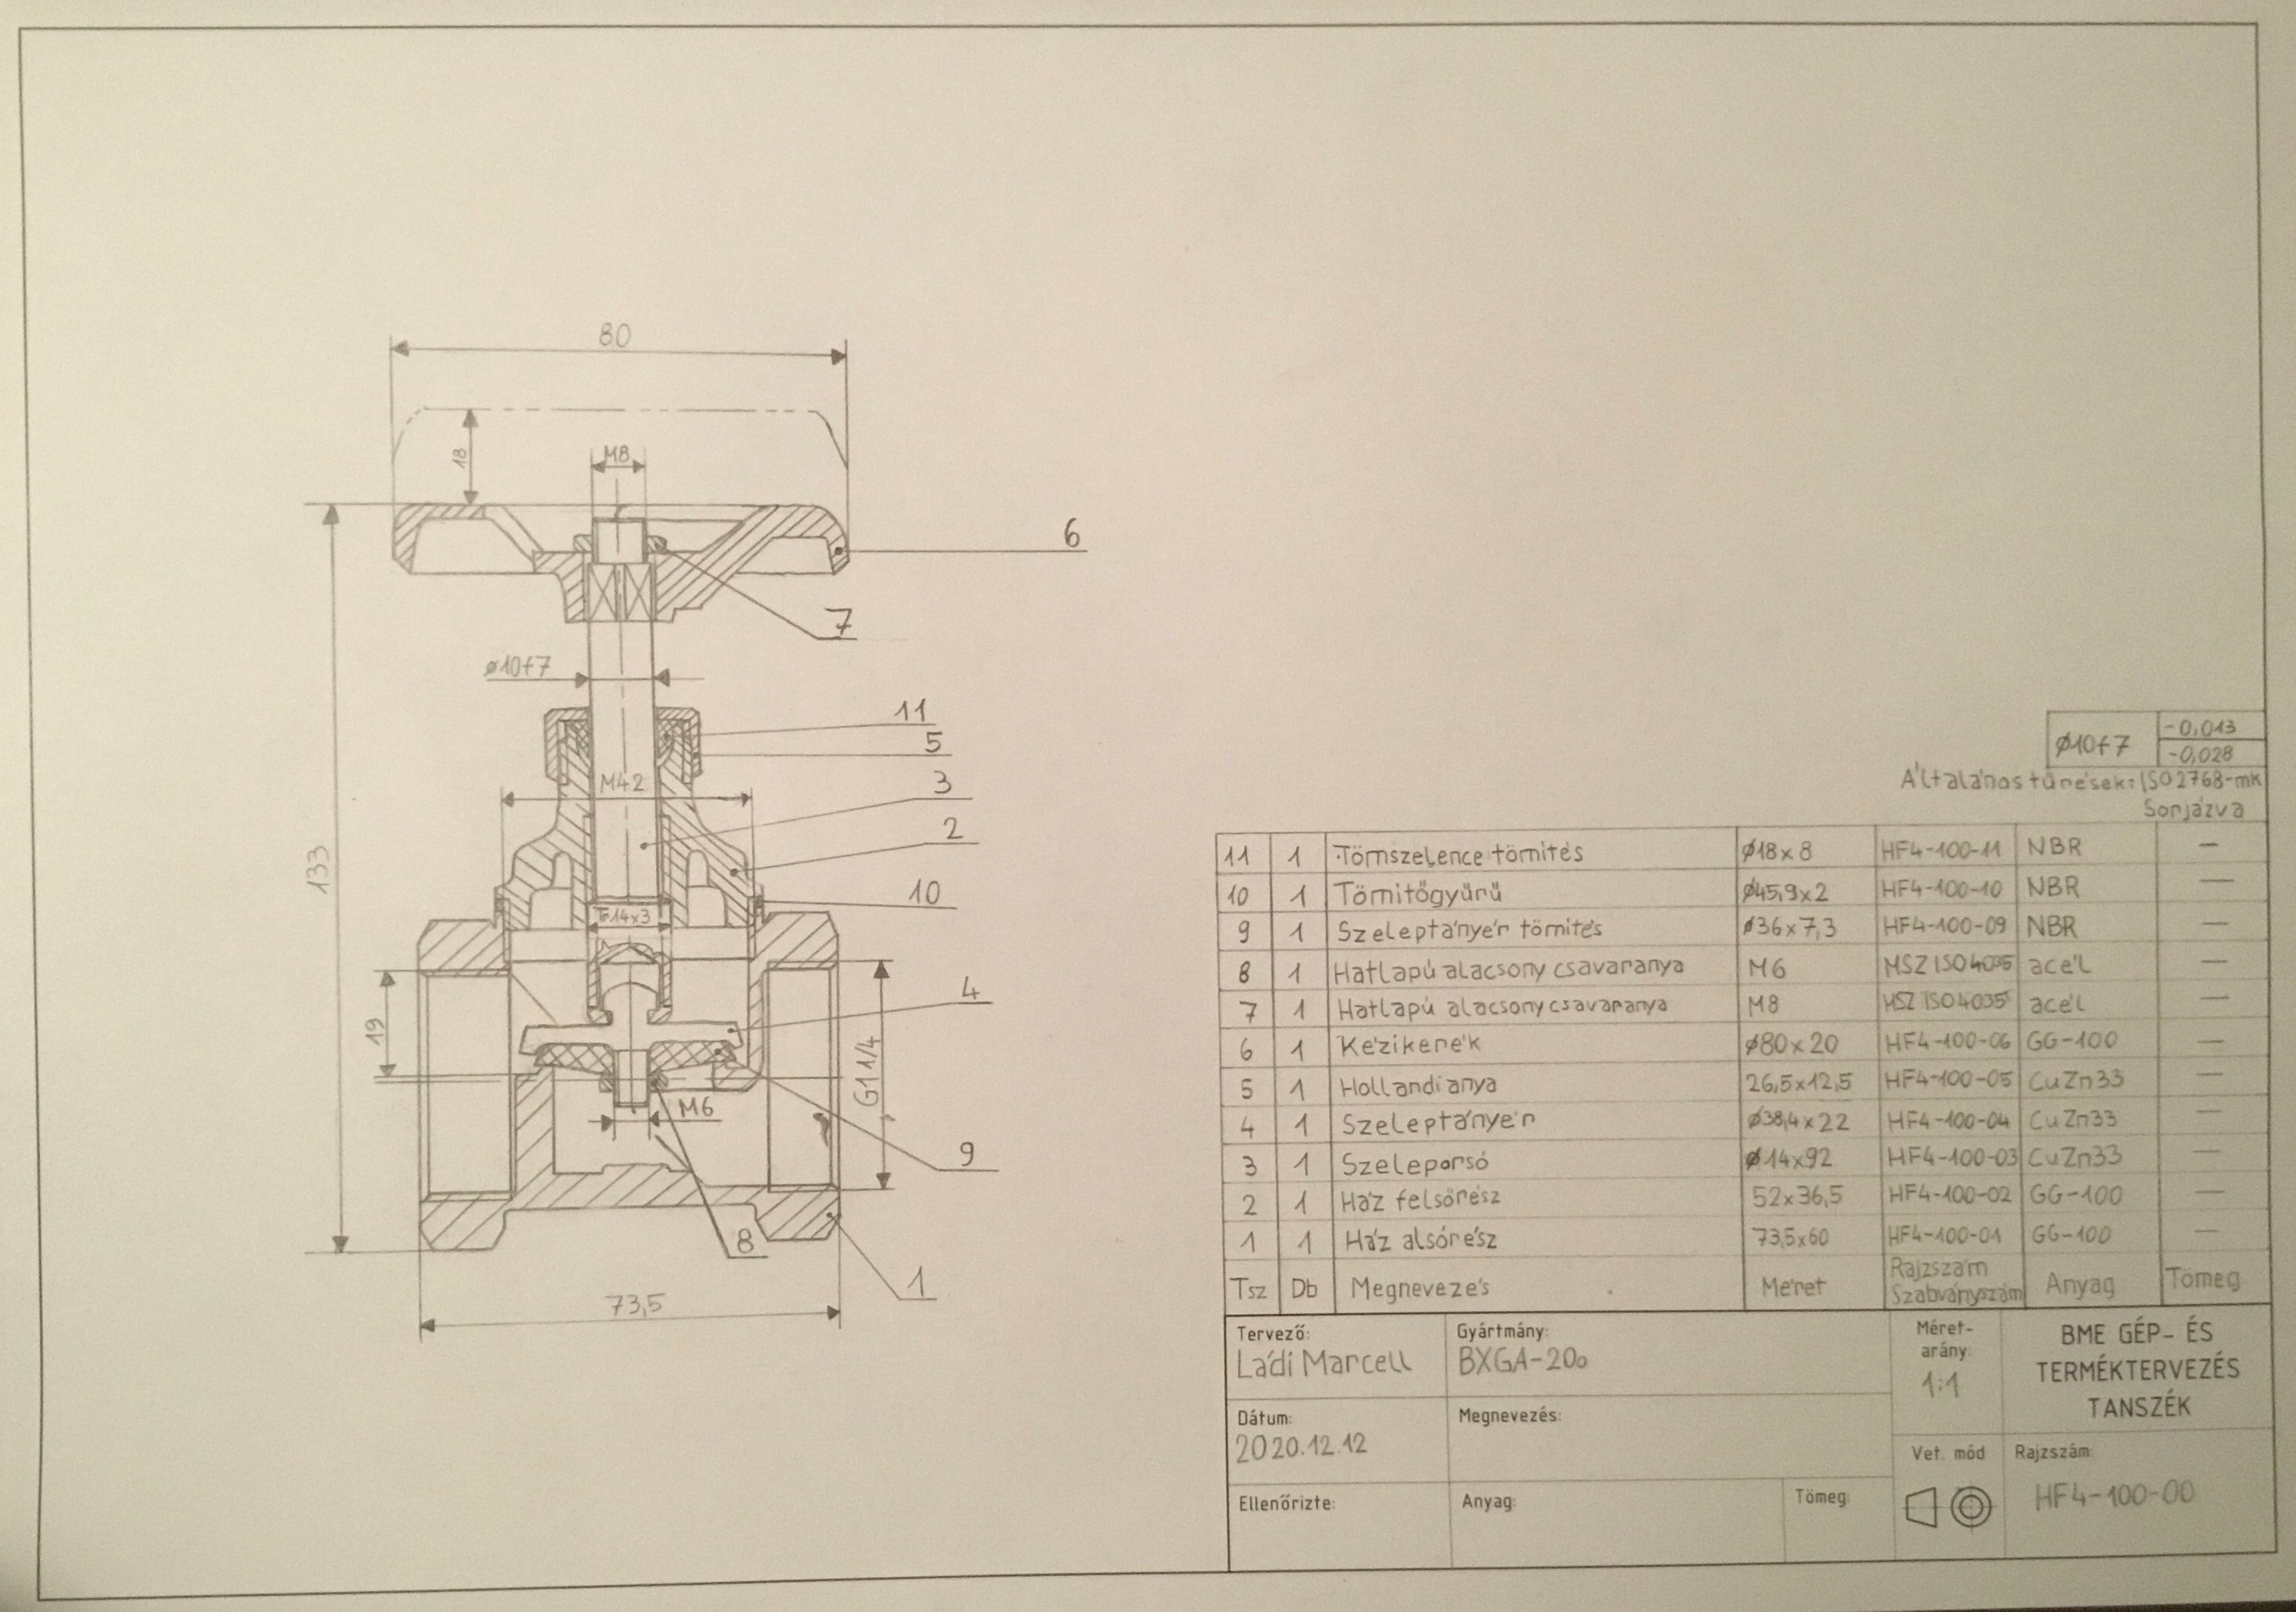 80
18
M8
6
7
Ø10f7
11
5
M42
3
2
133
10
Tr14x3
4
19
G1 1/4
M6
9
8
1
73,5
Ø10f7
-0,013
-0,028
Általános tűrések: ISO2768-mK
Sorjázva
11 1 Tömszelence tömítés Ø18x8 HF4-100-11 NBR —
10 1 Tömítőgyűrű Ø45,9x2 HF4-100-10 NBR —
9 1 Szeleptányér tömítés Ø36x7,3 HF4-100-09 NBR —
8 1 Hatlapú alacsony csavaranya M6 MSZ ISO4035 acél —
7 1 Hatlapú alacsony csavaranya M8 MSZ ISO4035 acél —
6 1 Kézikerék Ø80x20 HF4-100-06 GG-100 —
5 1 Hollandi anya 26,5x12,5 HF4-100-05 CuZn33 —
4 1 Szeleptányér Ø38,4x22 HF4-100-04 CuZn33 —
3 1 Szeleporsó Ø14x92 HF4-100-03 CuZn33 —
2 1 Ház felsőrész 52x36,5 HF4-100-02 GG-100 —
1 1 Ház alsórész 73,5x60 HF4-100-01 GG-100 —
Tsz Db Megnevezés Méret Rajzszám Anyag Tömeg
Szabványszám
Tervező:
Ládi Marcell
Gyártmány:
BXGA-200
Méret-
arány:
1:1
BME GÉP- ÉS
TERMÉKTERVEZÉS
TANSZÉK
Dátum:
2020.12.12
Megnevezés:
Vet. mód
Rajzszám:
HF4-100-00
Ellenőrizte:
Anyag:
Tömeg: